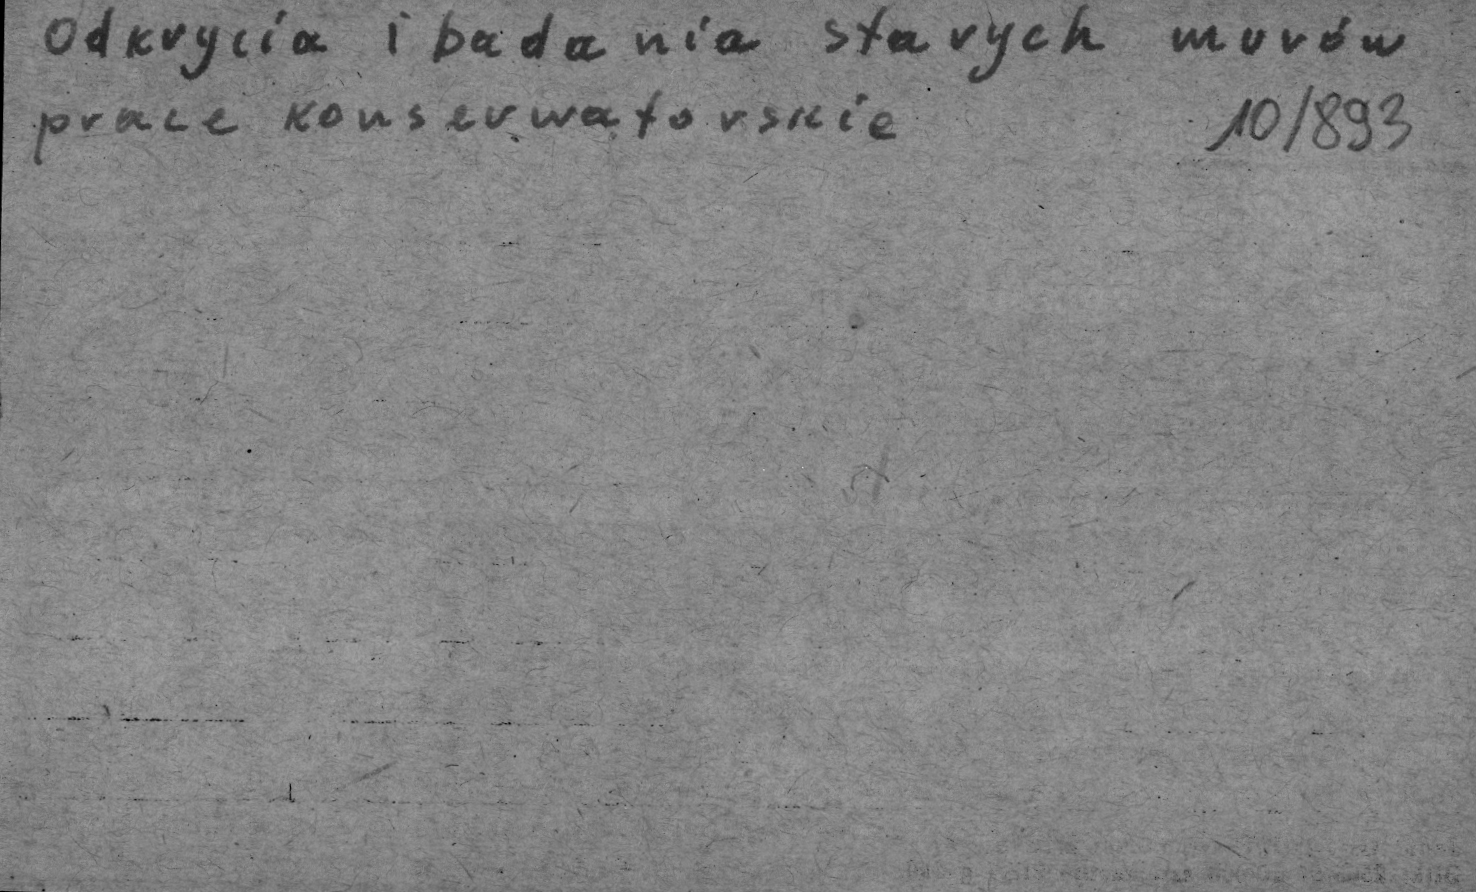 Odkrycia i badania starych murów
prace konserwatorskie 10/893